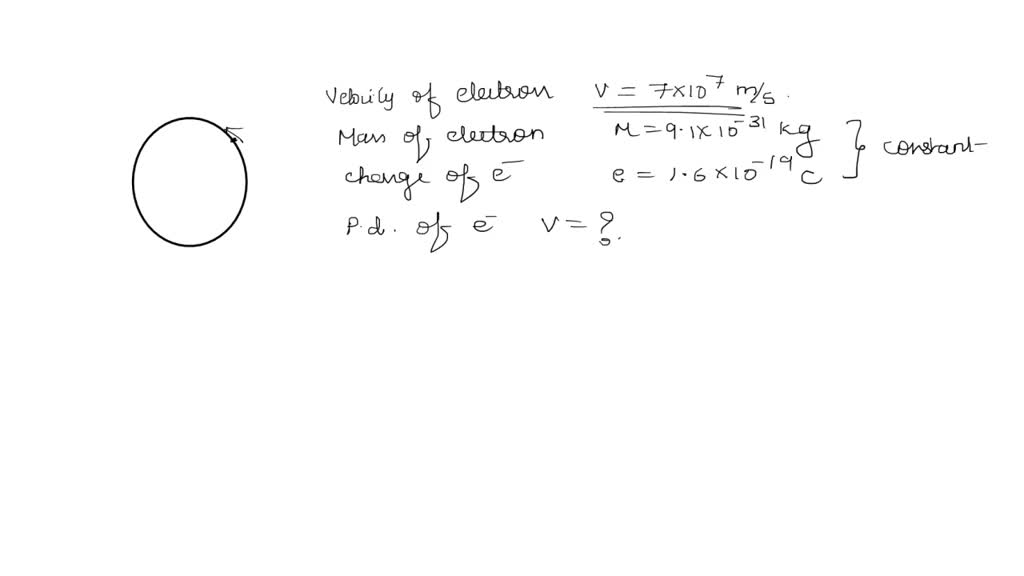 Velocity of electron V = 7×10⁷ m/s.
Mass of electron M = 9.1×10⁻³¹ kg
charge of e⁻ e = 1.6×10⁻¹⁹ C } constant
P.d. of e⁻ V = ?